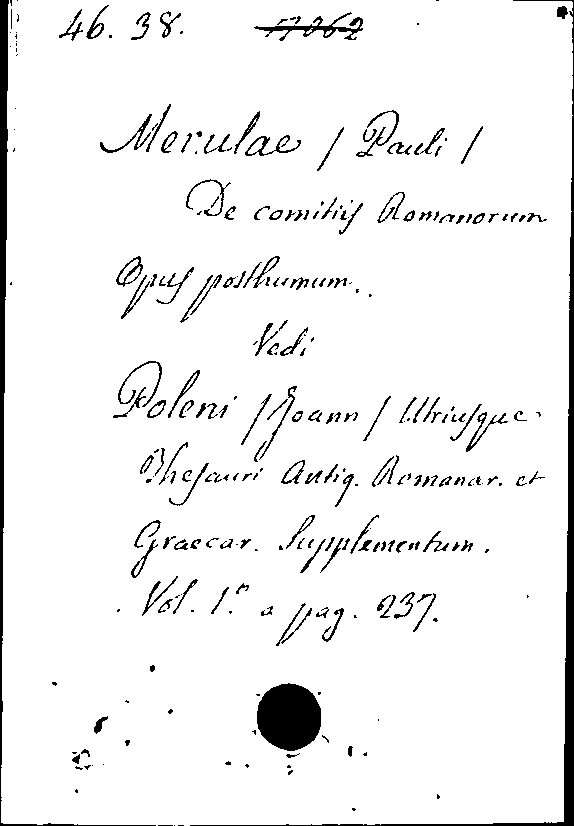 46. 38. 17062
Merulae / Pauli /
De comitiis Romanorum
Opus posthumum..
Vedi
Poleni / Joann / Utriusque
Thesauri Antiq. Romanar. et
Graecar. Supplementum.
Vol. 1.º a pag. 237.